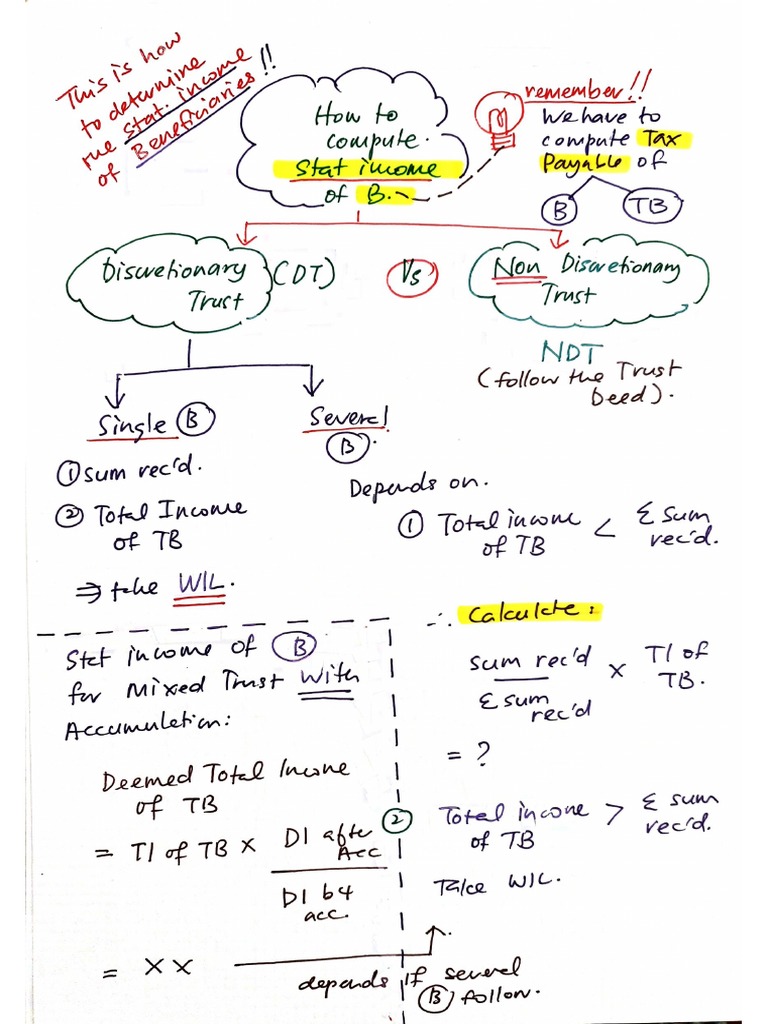 This is how
to determine
the stat. income
of Beneficiaries!!
How to
compute.
Stat income
of B.
remember!!
We have to
compute Tax
Payable of
B TB
Discretionary
Trust (DT)
Vs
Non Discretionary
Trust
NDT
(follow the Trust
Deed).
Single B
① sum rec'd.
② Total Income
of TB
⇒ take WIL.
Several
B.
Depends on.
① Total income
of TB < Σ sum
rec'd.
∴ Calculate:
sum rec'd
Σ sum
rec'd
× TI of
TB.
= ?
② Total income
of TB > Σ sum
rec'd.
Take WIL.
Stat income of B
for Mixed Trust With
Accumulation:
Deemed Total Income
of TB
= TI of TB × DI after
Acc
DI b4
acc.
= XX
depends if several
B follow.